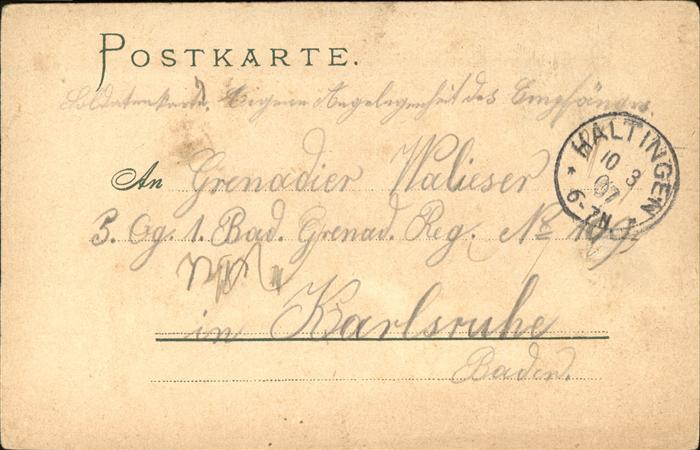 POSTKARTE.
Soldatenkarte. Eigene Angelegenheit des Empfängers.
An Grenadier Walieser
5. Cg. 1. Bad. Grenad. Reg. № 109.
in Karlsruhe
Baden.
* HALTINGEN *
10 3
07
6-7N.